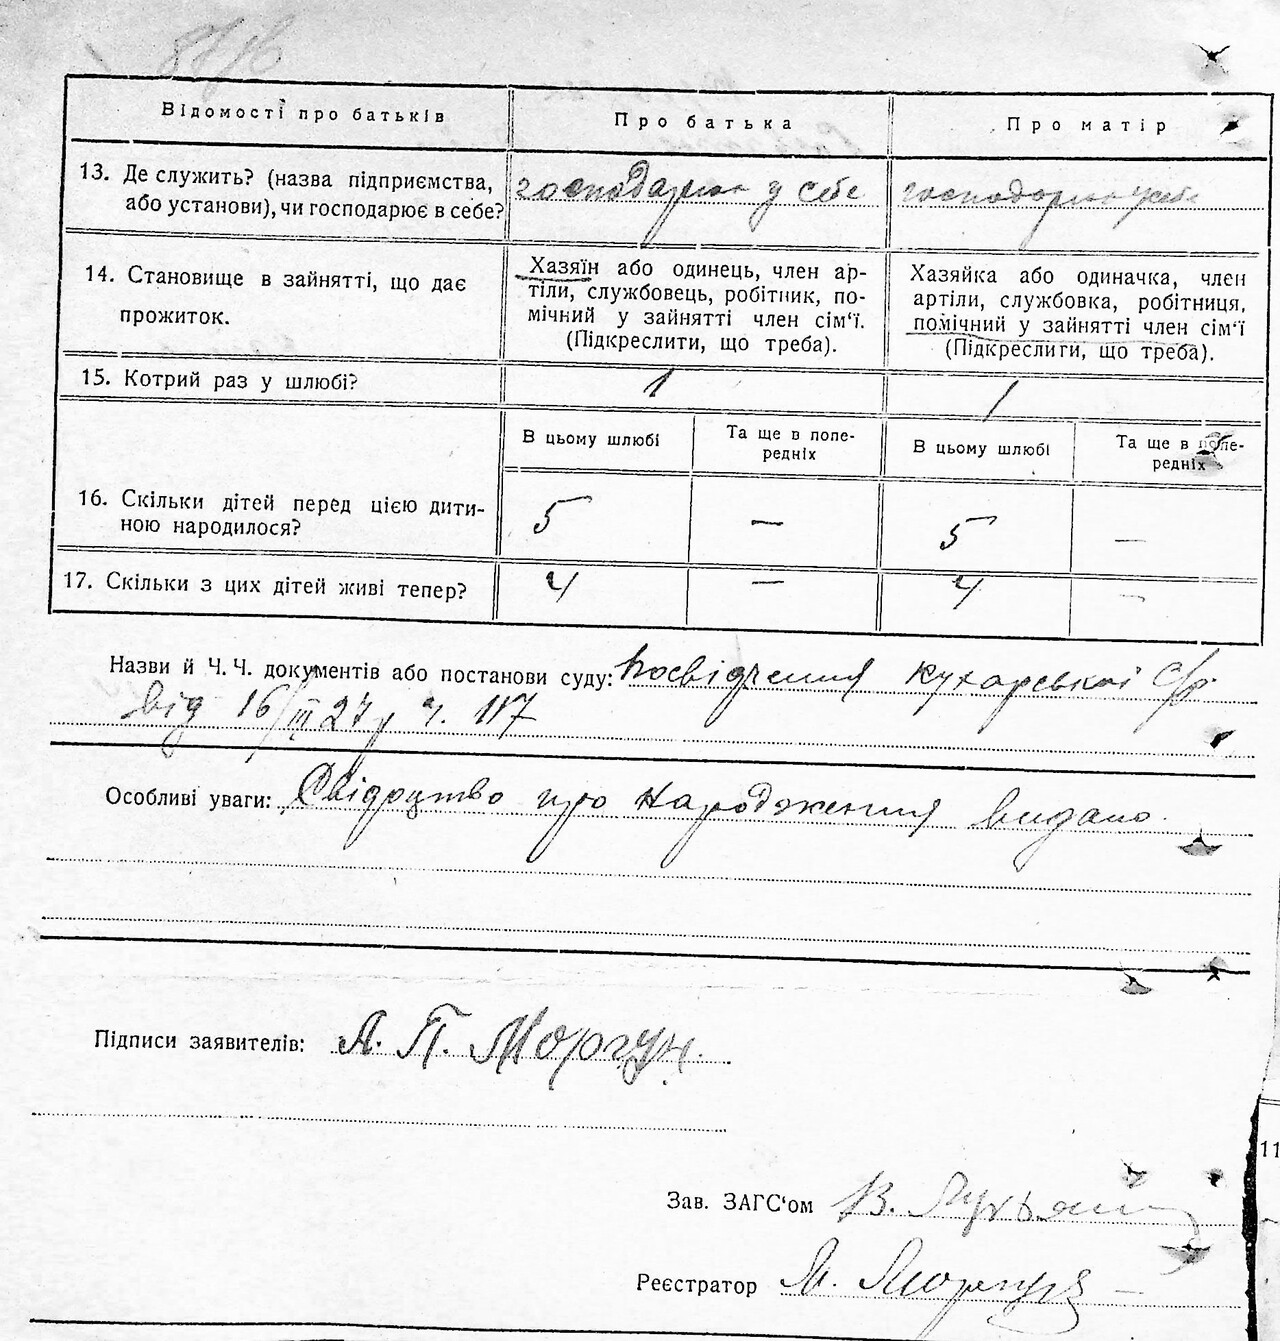 Відомості про батьків Про батька Про матір
13. Де служить? (назва підприємства, або установи), чи господарює в себе? господарює у себе господарює у себе
14. Становище в зайнятті, що дає прожиток.
Хазяїн або одинець, член ар-
тіли, службовець, робітник, по-
мічний у зайнятті член сім‘ї.
(Підкреслити, що треба).
Хазяйка або одиначка, член
артіли, службовка, робітниця,
помічний у зайнятті член сім‘ї
(Підкреслити, що треба).
15. Котрий раз у шлюбі? 1 1
В цьому шлюбі Та ще в попе-
редніх В цьому шлюбі Та ще в попе-
редніх
16. Скільки дітей перед цією дити-
ною народилося? 5 — 5 —
17. Скільки з цих дітей живі тепер? 4 — 4 —
Назви й Ч.Ч. документів або постанови суду: Посвідчення Кухарської с/р.
від 16/III 27 р ч. 117
Особливі уваги: Свідоцтво про народження видано.
Підписи заявителів: А. П. Моргун.
Зав. ЗАГС‘ом В.
Реєстратор
11